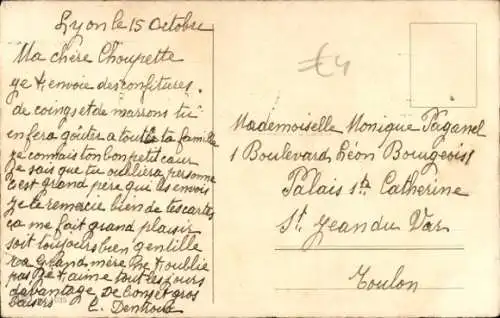 Lyon le 15 Octobre
Ma chère Choupette
je t envoie des confitures
de coings et de marrons tu
en fera goûter a toute ta famille
je connais ton bon petit cœur
je sais que tu oubliera personne
c'est grand père qui les envois
je te remercie bien de tes cartes
ça me fait grand plaisir
soit toujours bien gentille
ta grand mère ne t oublie
pas et t aime tout les jours
davantage de bons et gros
baisers
€4
Mademoiselle Monique Paganel
1 Boulevard Léon Bourgeois
Palais Ste Catherine
St Jean du Var
Toulon